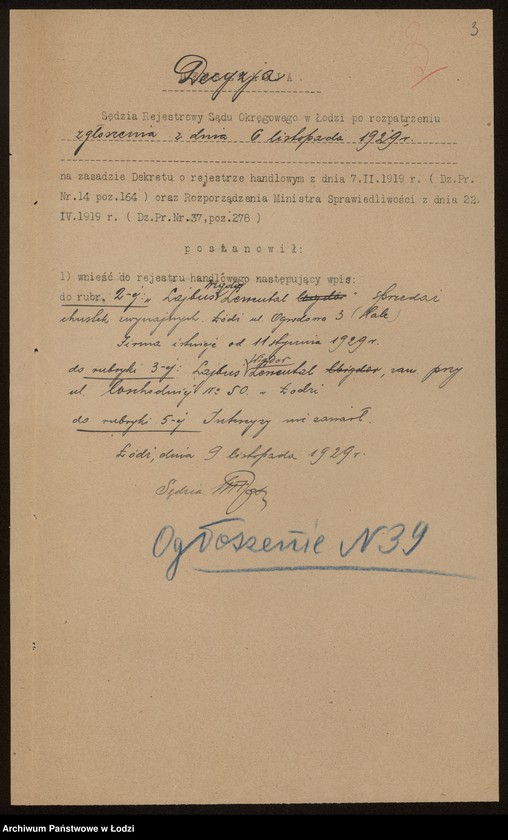 3
Decyzja
Sędzia Rejestrowy Sądu Okręgowego w Łodzi po rozpatrzeniu
zgłoszenia z dnia 6 listopada 1929 r.
na zasadzie Dekretu o rejestrze handlowym z dnia 7.II.1919 r. ( Dz.Pr.
Nr.14 poz.164 ) oraz Rozporządzenia Ministra Sprawiedliwości z dnia 22.
IV.1919 r. ( Dz.Pr.Nr.37,poz.278 )
p o s t a n o w i ł:
1) wnieść do rejestru handlowego następujący wpis:
do rubr. 2-ej: „Lajbuś Lemental" Sprzedaż
chustek Łódź ul. Ogrodowa 3 (Hale)
Firma istnieje od 11 stycznia 1929 r.
do rubryki 3-ej: Lajbuś Lemental zam. przy
ul. Wschodniej № 50. Łodzi
do rubryki 5-ej Intercyzy nie zawarł.
Łódź, dnia 9 listopada 1929 r.
Sędzia
Ogłoszenie N 39
Archiwum Państwowe w Łodzi